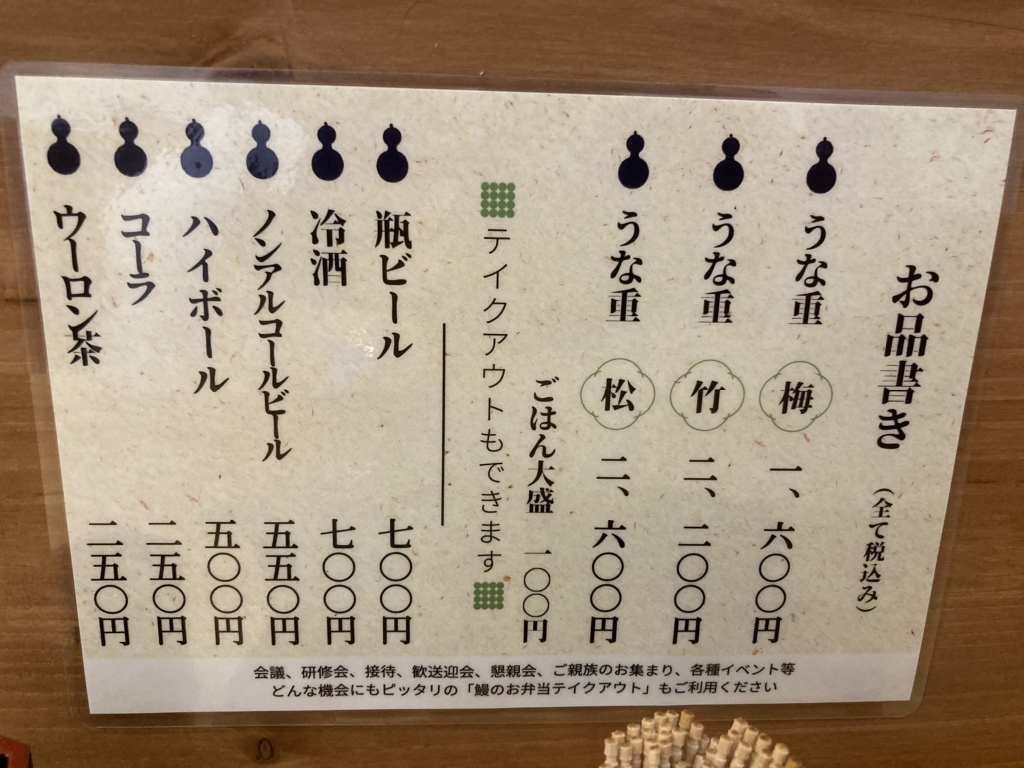 お品書き
(全て税込み)
うな重 梅 一、六〇〇円
うな重 竹 二、二〇〇円
うな重 松 二、六〇〇円
ごはん大盛 一〇〇円
テイクアウトもできます
瓶ビール 七〇〇円
冷酒 七〇〇円
ノンアルコールビール 五五〇円
ハイボール 五〇〇円
コーラ 二五〇円
ウーロン茶 二五〇円
会議、研修会、接待、歓送迎会、懇親会、ご親族のお集まり、各種イベント等
どんな機会にもピッタリの「鰻のお弁当テイクアウト」もご利用ください